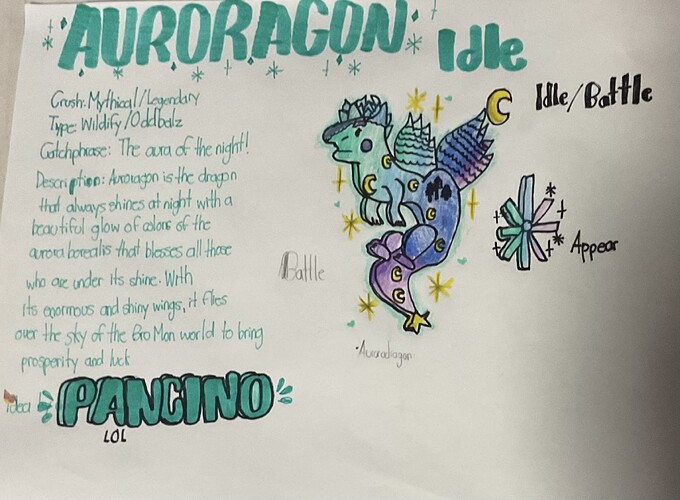 AURORAGON Idle
Crush: Mythical/Legendary
Type: Wildify/Oddbalz
Catchphrase: The aura of the night!
Description: Auroragon is the dragon
that always shines at night with a
beautiful glow of colors of the
aurora borealis that blesses all those
who are under its shine. With
its enormous and shiny wings, it flies
over the sky of the Bro Mon world to bring
prosperity and luck
idea
PANCINO
LOL
Idle/Battle
Appear
Battle
•Auroradragon